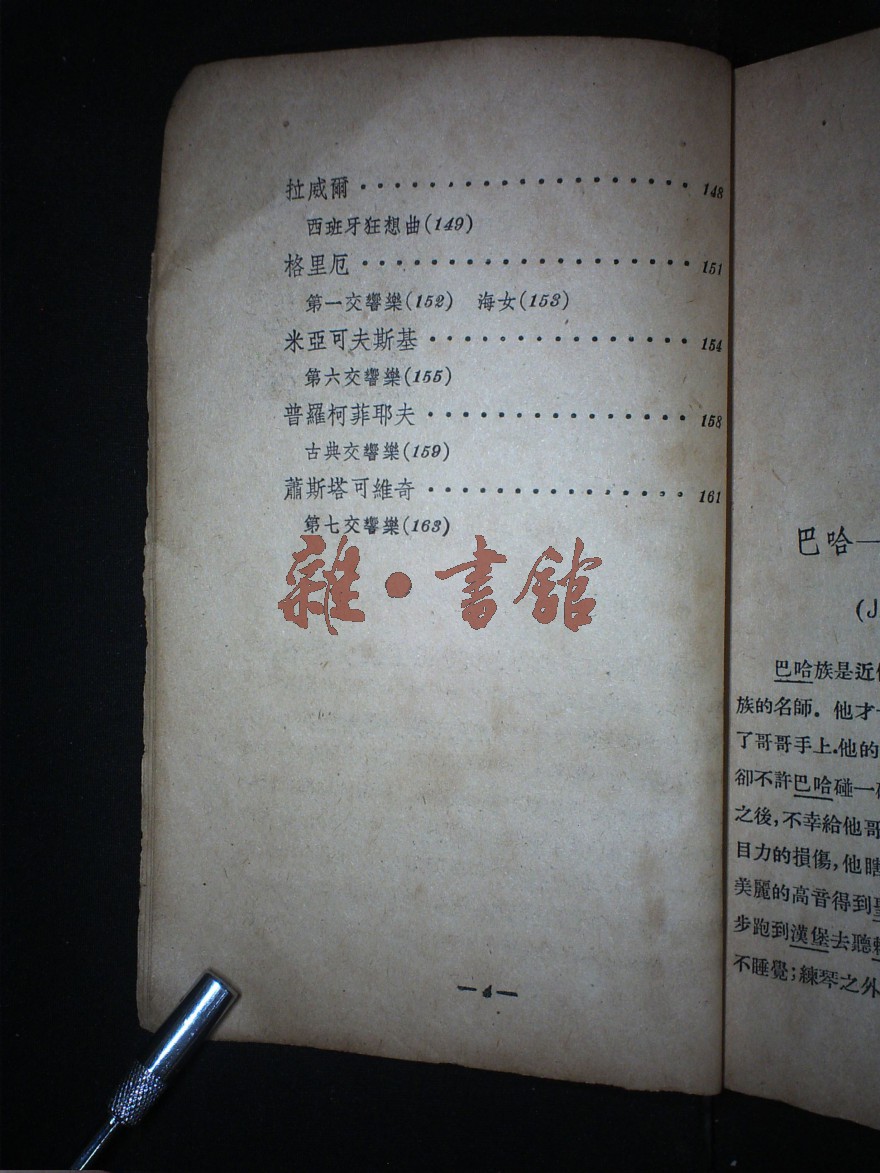 拉威爾····················148
西班牙狂想曲(149)
格里厄····················151
第一交響樂(152) 海女(153)
米亞可夫斯基···············154
第六交響樂(155)
普羅柯菲耶夫···············158
古典交響樂(159)
蕭斯塔可維奇···············161
第七交響樂(163)
雜·書館
—4—
巴哈—
(J
巴哈族是近
族的名師．他才
了哥哥手上．他的
卻不許巴哈碰一
之後，不幸給他哥
目力的損傷，他瞎
美麗的高音得到
步跑到漢堡去聽
不睡覺；練琴之外